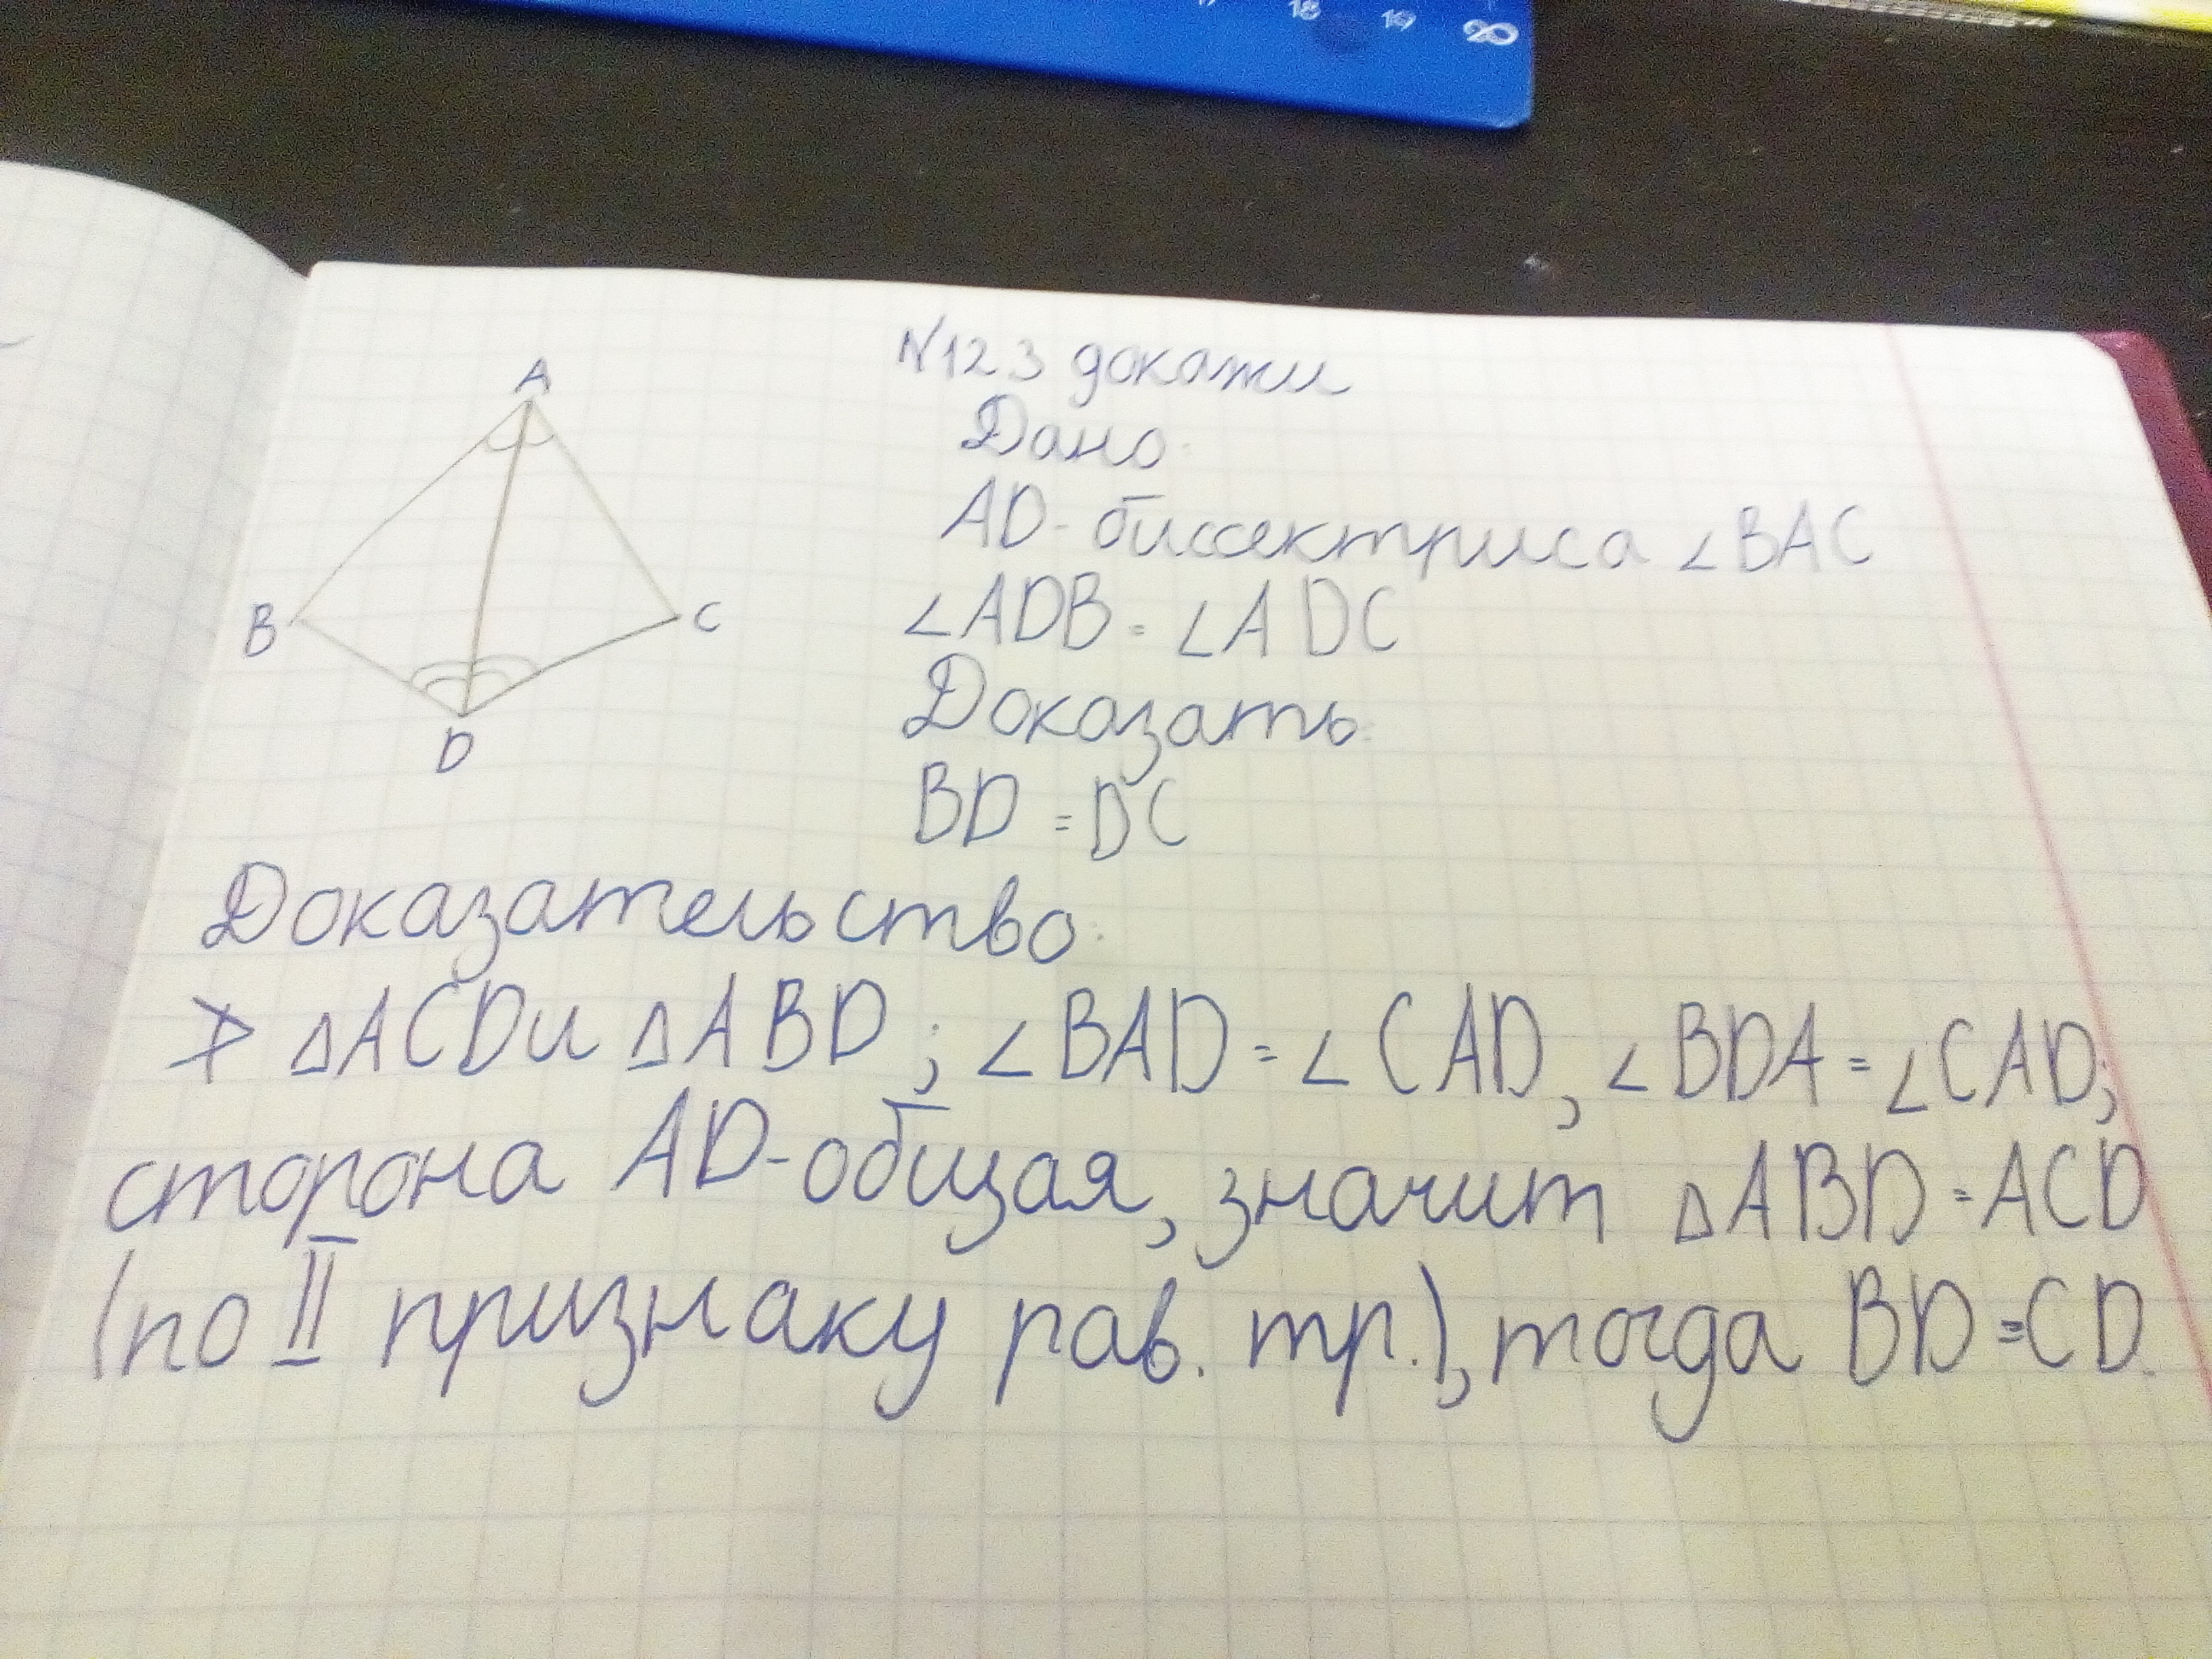 18 19 20
A
B
C
D
N123 докажи
Дано:
AD-биссектриса ∠BAC
∠ADB=∠ADC
Доказать:
BD=DC
Доказательство:
∆ACD и ∆ABD; ∠BAD=∠CAD, ∠BDA=∠CAD;
сторона AD-общая, значит ∆ABD=ACD
(по II признаку рав. тр.), тогда BD=CD.